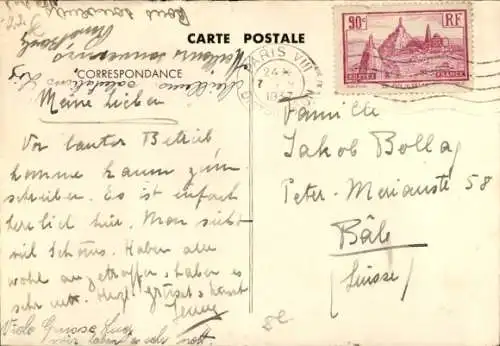 CARTE POSTALE
CORRESPONDANCE
Meine Lieben
Vor lauter Betrieb
komme kaum zum
schreiben. Es ist einfach
herrlich hier. Man sieht
viel Schönes. Haben alle
wohl angetroffen, haben es
sehr nett. Herzl. grüsst & küsst
Jenny
Viele Grüsse
wir haben es sehr nett.
Meilleures salutations
Meilleurs souvenirs
Bons souvenirs
90c
RF
FRANCE
PARIS VIII
24
7
1937
Famille
Jakob Bolla
Peter-Merianstr 58
Bâle
(Suisse)